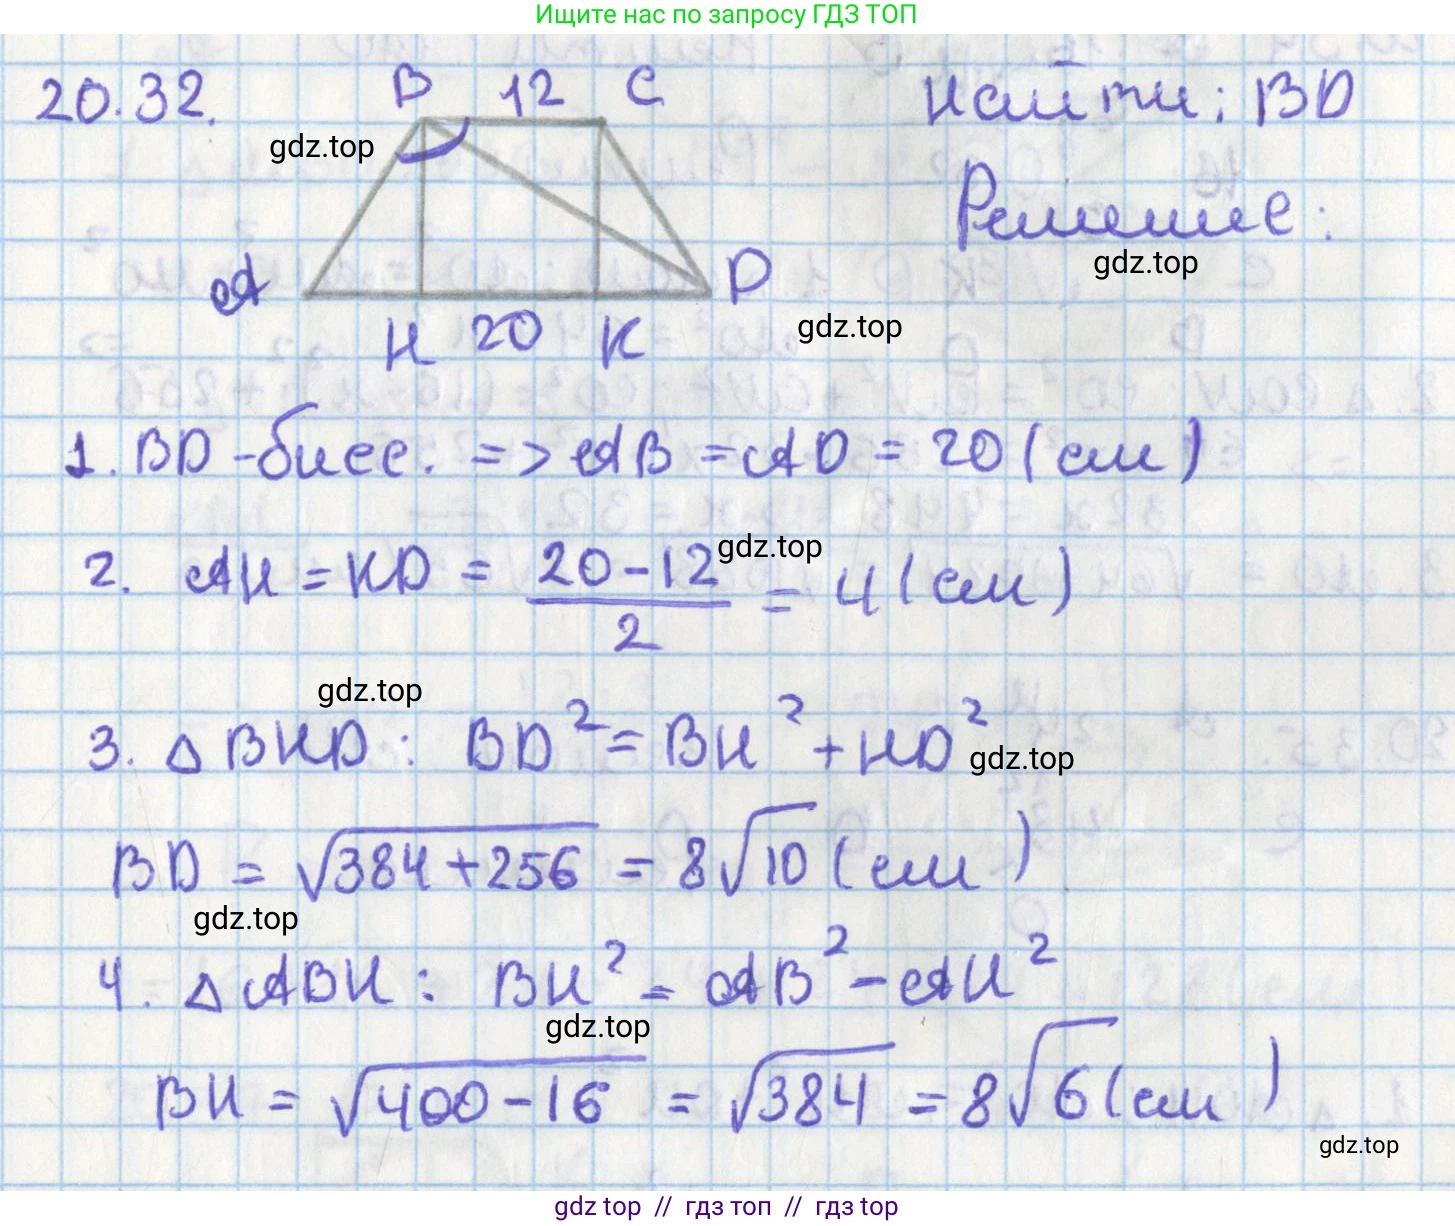 Ищите нас по запросу ГДЗ ТОП
20.32. B 12 C Найти: BD
gdz.top
Решение:
gdz.top
A D
H 20 K
gdz.top
1. BD - бисс. => AB = AD = 20 (см)
gdz.top
2. AH = KD = \frac{20-12}{2} = 4 (см)
gdz.top
3. △ BHD: BD² = BH² + HD²
gdz.top
BD = √(384+256) = 8√10 (см)
gdz.top
4. △ ABH: BH² = AB² - AH²
gdz.top
BH = √(400-16) = √384 = 8√6 (см)
gdz.top
gdz top // гдз топ // гдз top